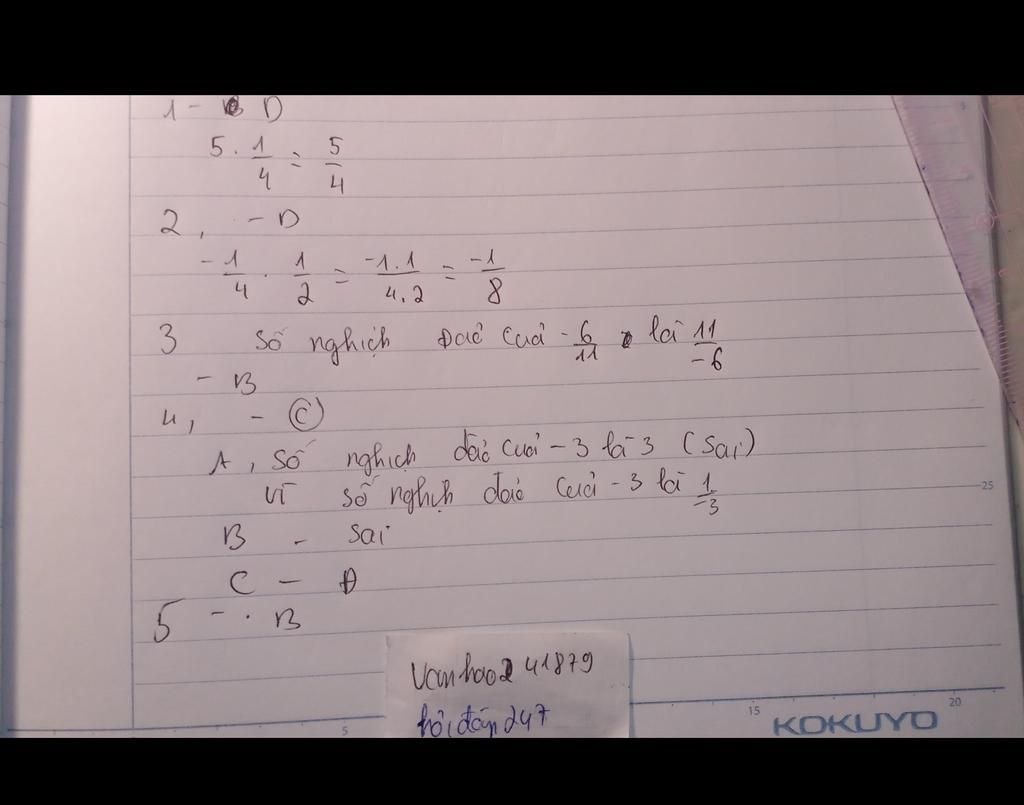 1 - D
5 . 1/4 = 5/4
2, - D
-1/4 . 1/2 = -1.1/4.2 = -1/8
3 Số nghịch Đảo của -6/11 là 11/-6
- B
4, - C
A, Số nghịch đảo của -3 là 3 (Sai)
vì số nghịch đảo của -3 là 1/-3
B - Sai
C - Đ
5 - . B
vanhao241879
hỏi đáp 247
5
15
20
25
KOKUYO